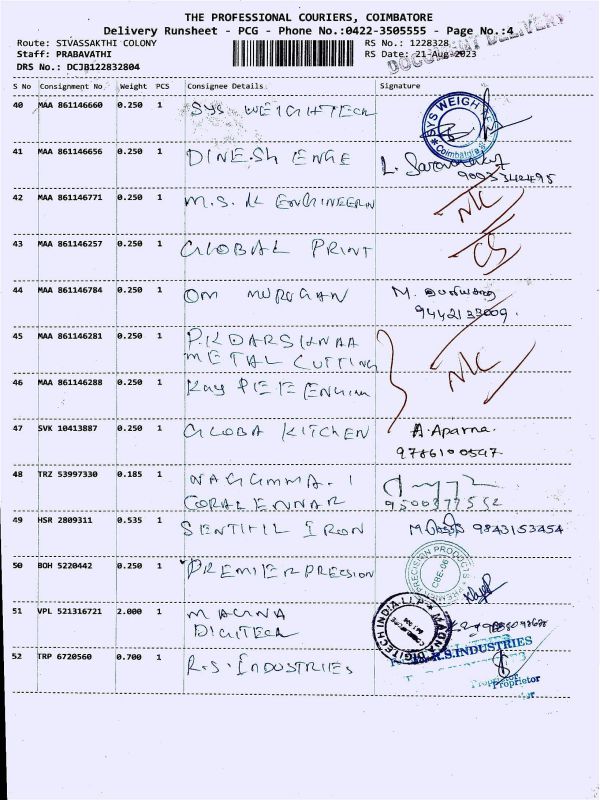 THE PROFESSIONAL COURIERS, COIMBATORE
Delivery Runsheet - PCG - Phone No.:0422-3505555 - Page No.:4
DOCUMENT DELIVERY
Route: SIVASSAKTHI COLONY RS No.: 1228328
Staff: PRABAVATHI RS Date: 21-Aug-2023
DRS No.: DCJB122832804
S No Consignment No Weight PCS Consignee Details Signature
40 MAA 861146660 0.250 1 SYS WEIGHTECH SYS WEIGH Coimbatore
41 MAA 861146656 0.250 1 DINESH ENGE L.
42 MAA 861146771 0.250 1 M.S.K ENGINEERIN N/C
43 MAA 861146257 0.250 1 GLOBAL PRINT
44 MAA 861146784 0.250 1 OM MURUGAN M.
9442133009
45 MAA 861146281 0.250 1 P.K DARSHNAA
METAL CUTTING N/C
46 MAA 861146288 0.250 1 Kay PEE ENGIN
47 SVK 10413887 0.250 1 GLOBA KITCHEN A. Aparna.
9786100547
48 TRZ 53997330 0.185 1 NAGAMMA. I
CORALENNAR 9500377552
49 HSR 2809311 0.535 1 SENTHIL IRON 9843153454
50 BOH 5220442 0.250 1 PREMIER PRECSION PRECISION PRODUCTS CBE-06
51 VPL 521316721 2.000 1 MAGNA
DIGITECH MAGNA DIGITECH INDIA LLP
52 TRP 6720560 0.700 1 R.S. INDUSTRIES R.S.INDUSTRIES
Proprietor